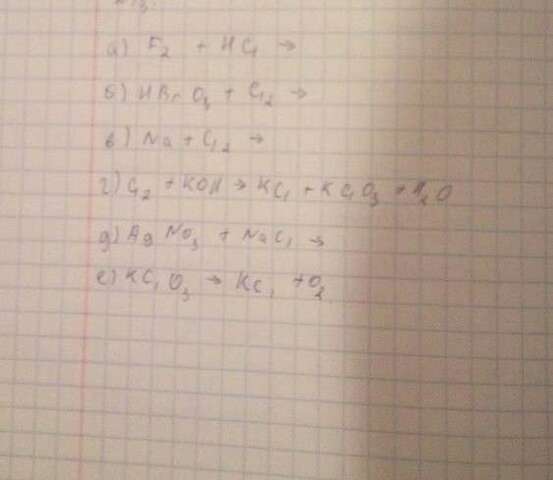 а) F₂ + HCl →
б) HBrO₃ + Cl₂ →
в) Na + Cl₂ →
г) Cl₂ + KOH → KCl + KClO₃ + H₂O
д) AgNO₃ + NaCl →
е) KClO₃ → KCl + O₂